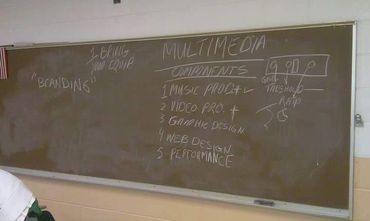 1 BRING
YOUR EQUIP
"BRANDING"
MULTIMEDIA
COMPONENTS
1 MUSIC PROD. + ✓
2 VIDEO PRO. +
3 GRAPHIC DESIGN
4 WEB DESIGN
5 PERFORMANCE